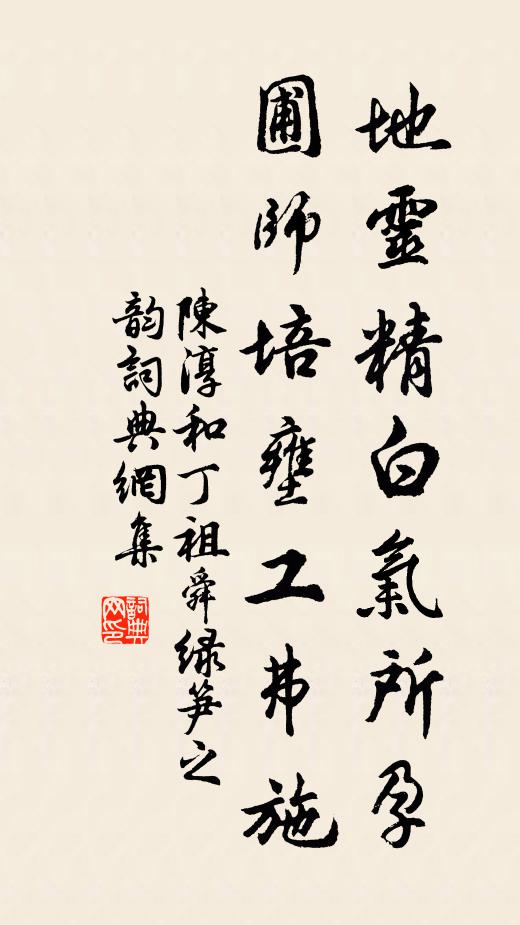 地靈精白氣所孕
圃師培壅工弗施
陳淳和丁祖舜緑笋之
韵詞典網集
詞典
网印